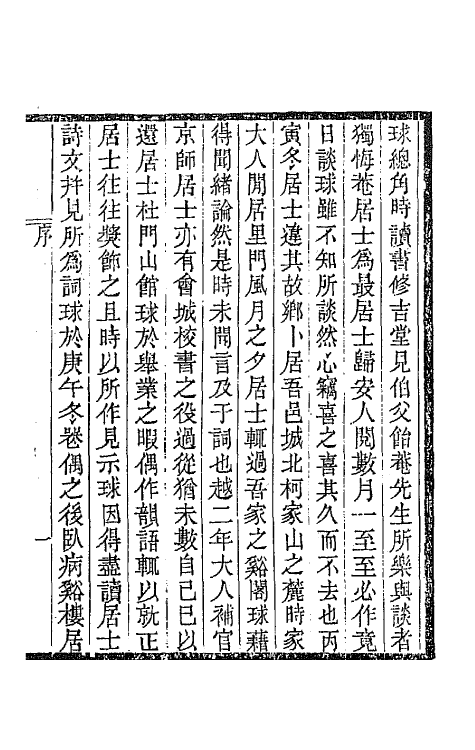 球總角時讀書修吉堂見伯父飴菴先生所樂與談者
獨悔菴居士爲最居士歸安人閱數月一至至必作竟
日談球雖不知所談然心竊喜之喜其久而不去也丙
寅冬居士違其故鄉卜居吾邑城北柯家山之麓時家
大人閒居里門風月之夕居士輒過吾家之谿閣球藉
得聞緒論然是時未聞言及于詞也越二年大人補官
京師居士亦有會城校書之役過從猶未數自己巳以
還居士杜門山館球於舉業之暇偶作韻語輒以就正
居士往往獎飾之且時以所作見示球因得盡讀居士
詩文幷見所爲詞球於庚午冬卷偶之後臥病谿樓居
序
一